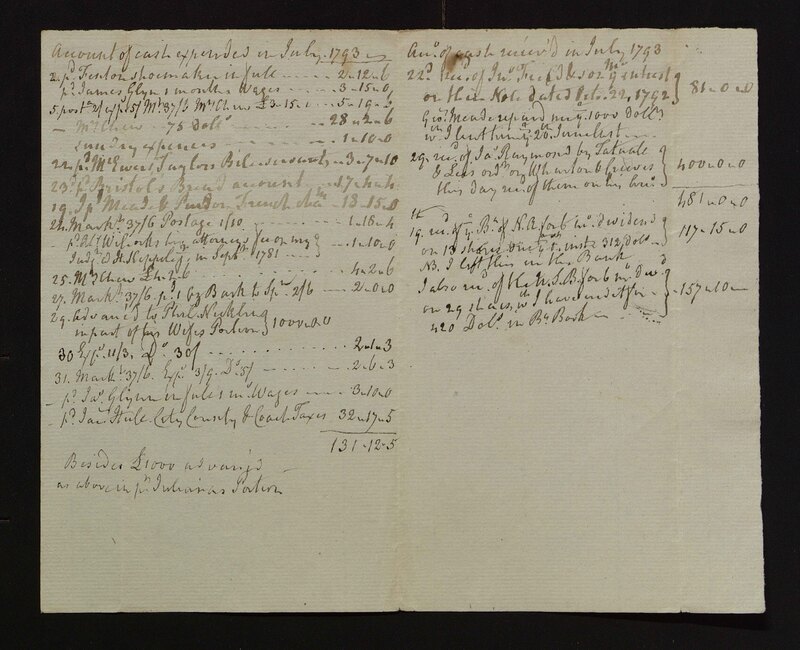 Account of cash expended in July 1793
2. pd. Fenton shoemaker in full 2-12-6
pd. James Glynn 1 months Wages 3-15-0
5. post 2/ exp. 5/ Mt. 37/3 Mrs. Chew £3-15-1 5-19-3
Mrs. Chew 75 Dolls. 28-2-6
Sundry expences 1-10-0
22. pd. McEwers Taylors Bill servants 3-7-10
23. pd. Bristols Bread account
19. pd. Mead & 13-15-0
24. Markt. 37/6 Postage 1/10 1-18-4
pd. Wilcocks his attorneys fee on my 1-10-0
Judgt. in Septr. 1781
25. Mrs. Chew 4-2-6
27. Markt. 37/6 pd. 1 bz Bark to 2/6 2-0-0
29. Advanced to Phil. Nicklin
in part of his Wifes Portion 1000-0-0
30 Exps. 11/3. Do. 30/ 2-1-3
31. Markt. 37/6. Exps. 3/9. Do. 5/ 2-6-3
pd. Jas. Glynn in full 1 ms. Wages 3-10-0
pd. Jas. Hule City County & Coach Taxes 32-17-5
131-12-5
Besides £1000 advanc'd
as above in pt. Julianas Portion
Amt. of cash receiv'd in July 1793
22d. recd. of Jno. intrest
on their Note dated Octr. 22, 1792 81-0-0
Geo. Meade repaid me ye. 1000 Dolls.
wh. I lent him ye. 20. June last
29. recd. of Jas. Raymond by Tatnale
& Lees ordr. on Wharton & Greeves
this day recd. of them on his 400-0-0
481-0-0
19. recd. of ye. Bk. of N. A for 6 ms. dividend
on 13 shares due ye. 1st. inst. 312 dolls. 117-15-0
NB. I left this in the Bank
I also recd. of the U. S. B for 6 ms. Divd.
on 29 shares, wh. I have in
420 Dols. in Bk. Bank 157-10